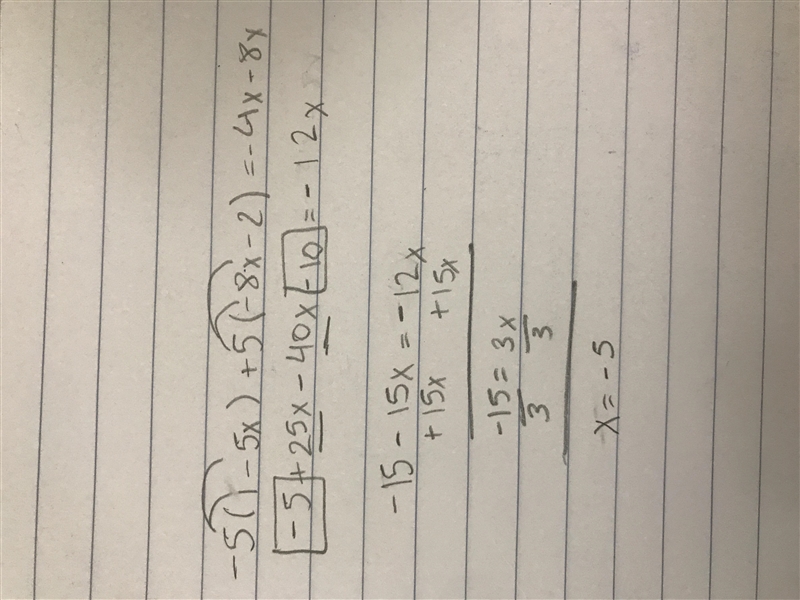 -5(1-5x)+5(-8x-2)=-4x-8x
-5+25x-40x-10=-12x
-15-15x=-12x
+15x +15x
-15=3x
3 3
x=-5